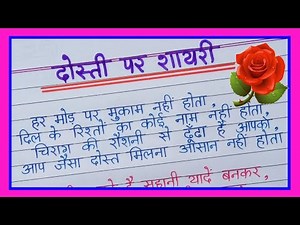 दोस्ती पर शायरी
हर मोड़ पर मुकाम नहीं होता,
दिल के रिश्तों का कोई नाम नहीं होता,
चिराग की रौशनी से ढूंढा है आपको,
आप जैसा दोस्त मिलना आसान नहीं होता
है सुहानी यादें बनकर,